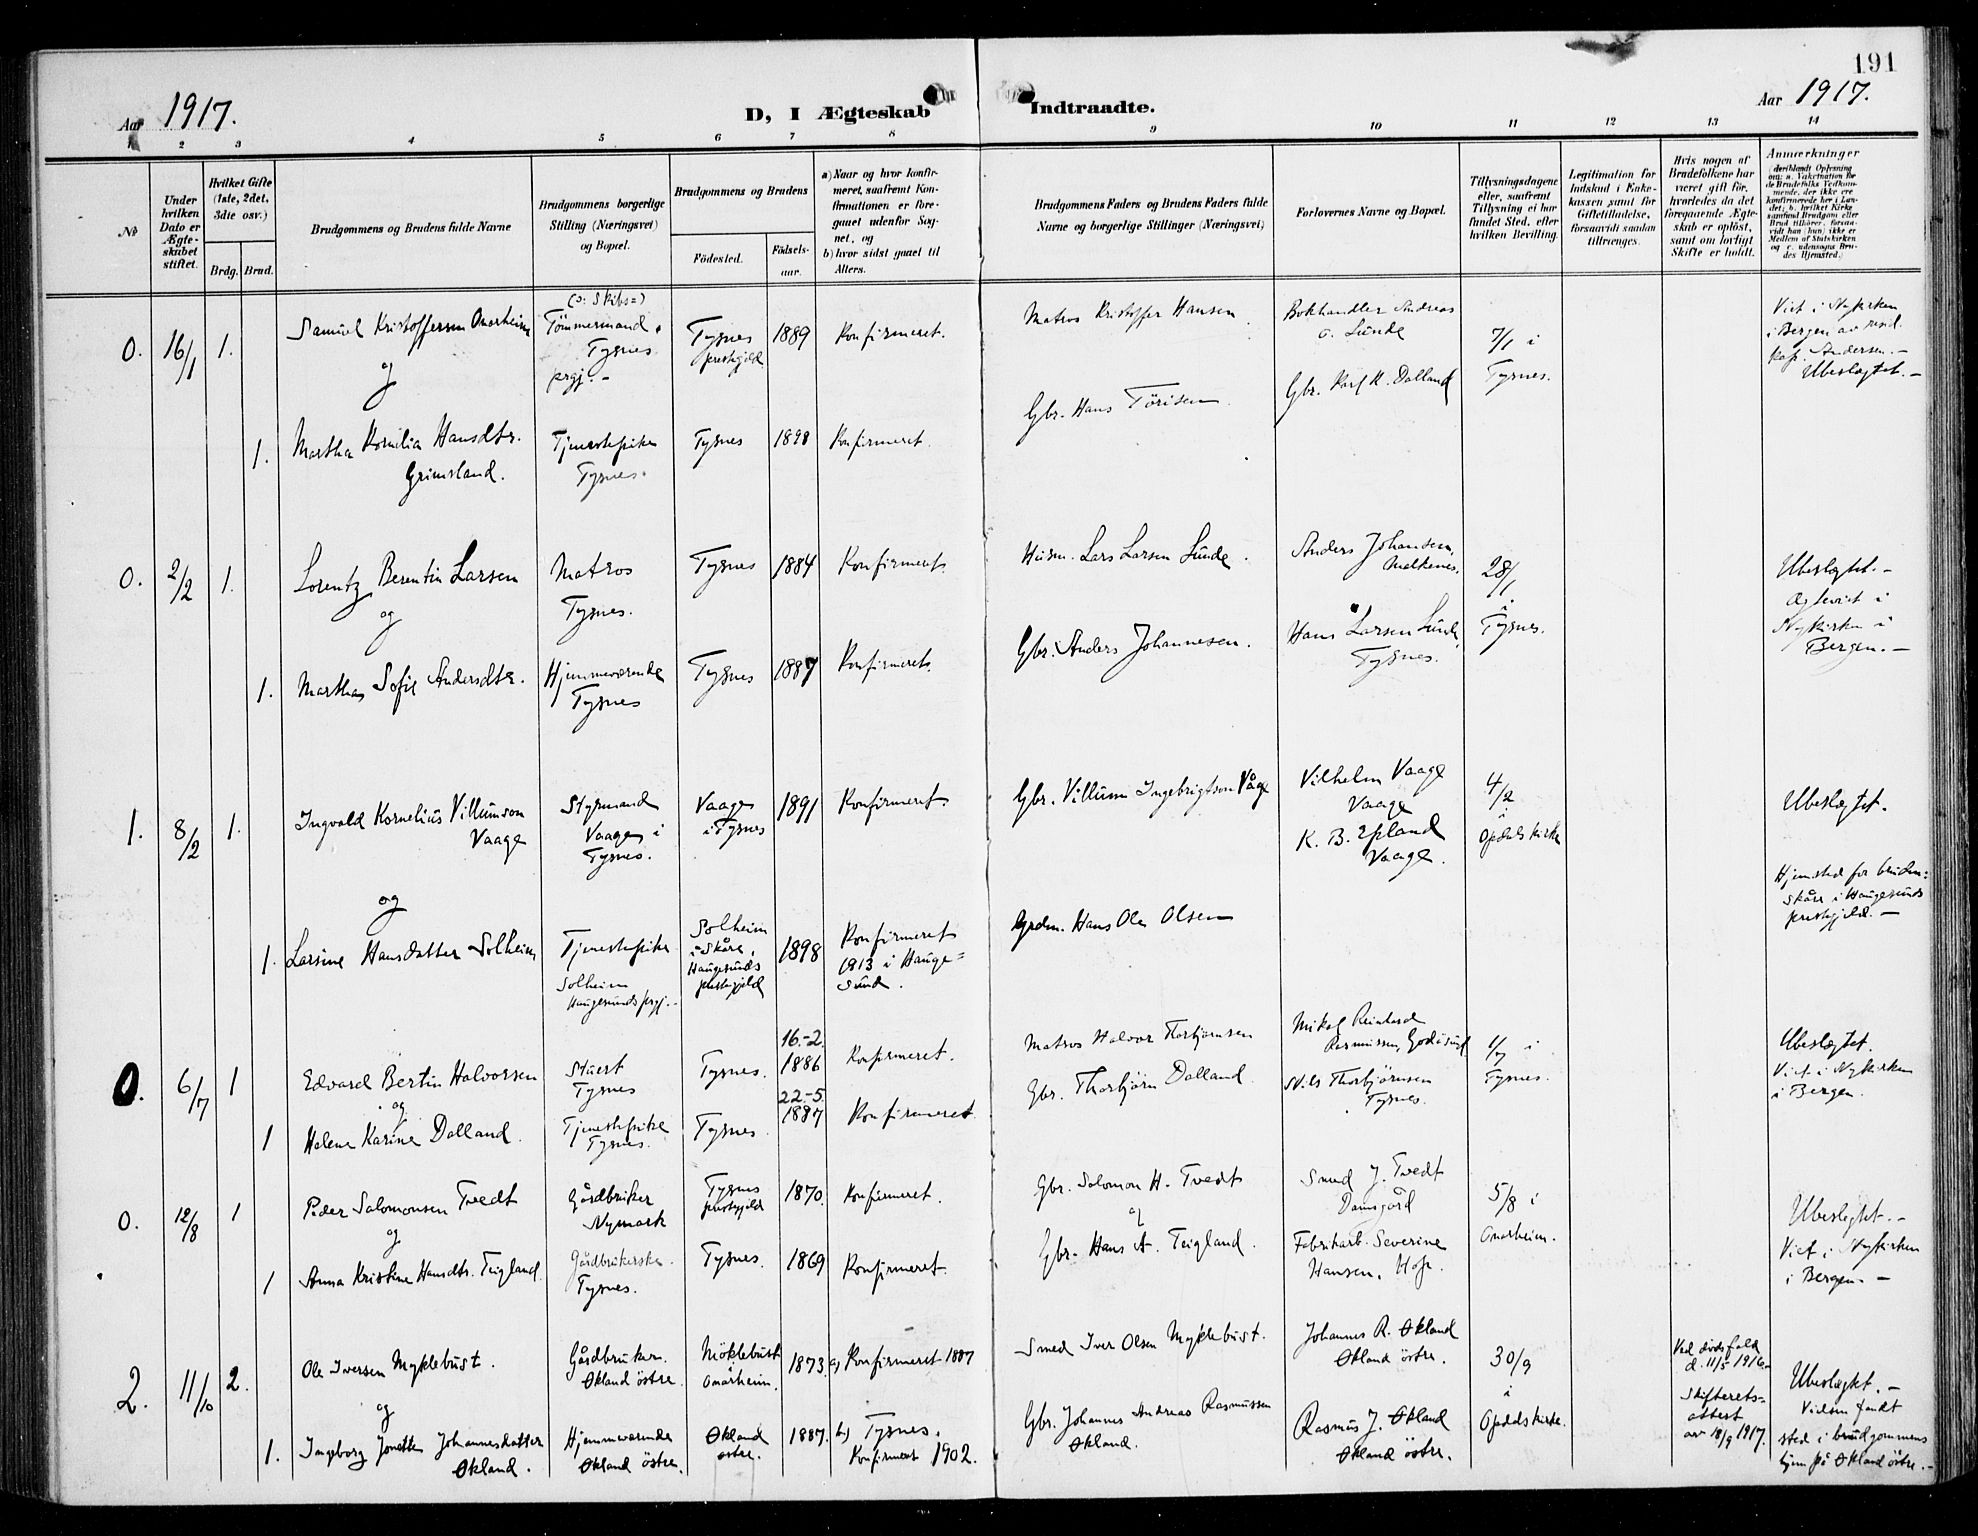 191
Aar 1917.
D, I Ægteskab Indtraadte.
Aar 1917.
1 2 3 4 5 6 7 8 9 10 11 12 13 14
No
Under hvilken Dato er Ægteskabet stiftet.
Hvilket Gifte (1ste, 2det, 3die osv.)
Brdg. Brud.
Brudgommens og Brudens fulde Navne
Brudgommens borgerlige Stilling (Næringsvei) og Bopæl.
Brudgommens og Brudens
Födested.
Födselsaar.
a) Naar og hvor konfirmeret, saafremt Konfirmationen er foregaaet udenfor Sognet, og
b) hvor sidst gaaet til Alters.
Brudgommens Faders og Brudens Faders fulde Navne og borgerlige Stillinger (Næringsvei)
Forlovernes Navne og Bopæl.
Tillysningsdagene eller, saafremt Tillysning ei har fundet Sted, efter hvilken Bevilling.
Legitimation for Indskud i Enkekassen samt for Giftetilladelse, forsaavidt saadan tiltrænges.
Hvis nogen af Brudefolkene har været gift för, hvorledes da det foregaaende Ægteskab er oplöst, samt om lovligt Skifte er holdt.
Anmærkninger
0. 16/1 1.
Samuel Kristoffersen Onarheim
(ɔ: Skibs=)
Tömmermand,
Tysnes
prgj. -
Tysnes
prestgjeld
1889
Konfirmeret.
Matros Kristoffer Hansen
Bokhandler Andreas
o. Lunde
7/1 i
Tysnes.
Viet i Nykirken
i Bergen av resd.
kap. Andersen. -
Ubeslægtet. -
og
Gbr. Hans Törisen
Gbr. Karl K. Dalland
1.
Martha Kornelia Hansdtr.
Grimsland.
Tjenestepike
Tysnes.
Tysnes
1898
Konfirmeret.
0. 2/2 1.
Lorentz Berentin Larsen
og
Matros
Tysnes.
Tysnes
1884
Konfirmeret.
Husm. Lars Larsen Lunde.
Anders Johansen,
Melkenes.
28/1
i
Tysnes.
Ubeslægtet. -
Ægteviet i
Nykirken i
Bergen. -
Gbr. Anders Johannesen.
Hans Larsen Lunde,
Tysnes.
1.
Martha Sofie Andersdtr.
Hjemmeværende
Tysnes
Tysnes
1887
Konfirmeret.
1. 8/2 1.
Ingvald Kornelius Villumson
Vaage
Styrmand
Vaage i
Tysnes.
Vaage
i Tysnes
1891
Konfirmeret.
Gbr. Villum Ingebrigtson Våge
Vilhelm Vaage
Vaage
K. B. Epland
Vaage.
4/2
i
Opdals kirke
Ubeslægtet.
Hjemsted for bruden:
Skåre i Haugesunds
prestgjeld. -
og
1.
Larsine Hansdatter Solheim
Tjenestepike
Solheim
Haugesunds prgj. -
Solheim
i Skåre,
Haugesunds
prestgjeld
1898
Konfirmeret
1913 i Hauge=
sund.
Grdm. Hans Ole Olsen
0. 6/7 1
Edvard Bertin Halvorsen
og
Stuert
Tysnes
Tysnes.
16.-2.
1886
Konfirmeret.
Matros Halvor Thorbjörnsen
Mikal Reinhard
Rasmussen, Godösund
1/7 i
Tysnes.
Ubeslægtet.
Viet i Nykirken
i Bergen.
1
Helene Karine Dalland.
Tjenestepike
Tysnes.
Tysnes
22.-5.
1887
Konfirmeret
Gbr. Thorbjörn Dalland.
Nils Thorbjörnsen
Tysnes.
0. 12/8 1
Peder Salomonsen Tvedt
og
Gårdbruker
Nymark
Tysnes
prestgjeld
1870.
Konfirmeret.
Gbr. Salomon H. Tvedt
og
Smed J. Tvedt
Damsgård
5/8 i
Onarheim.
Ubeslegtet. -
Viet i Nykirken
i Bergen -
1
Anna Kristine Hansdtr. Teigland
Gårdbrukerske
Tysnes.
Tysnes.
1869
Konfirmeret.
Gbr. Hans A. Teigland.
Fabrikarb. Severine
Hansen, Hop.
2. 11/10 2.
Ole Iversen Myklebust.
og
Gårdbruker.
Økland östre.
Möklebust
i
Onarheim.
1873.
a) Konfirmeret 1887
Smed Iver Olsen Myklebust.
Johannes R. Økland
Økland östre.
30/9
i
Opdalskirke.
Ved dödsfald
d. 11/5 1916.
Skifterets=
attest
av 18/9 1917.
Ubeslægtet. -
Vielsen fandt
sted i brudgommens
hjem på Økland östre. -
1.
Ingeborg Jonette Johannesdatter
Økland.
Hjemmeværende
Økland östre.
Økland
östre.
1887.
b) Tysnes.
Konfirmert 1902.
Gbr. Johannes Andreas Rasmussen
Økland.
Rasmus J. Økland
Økland östre.